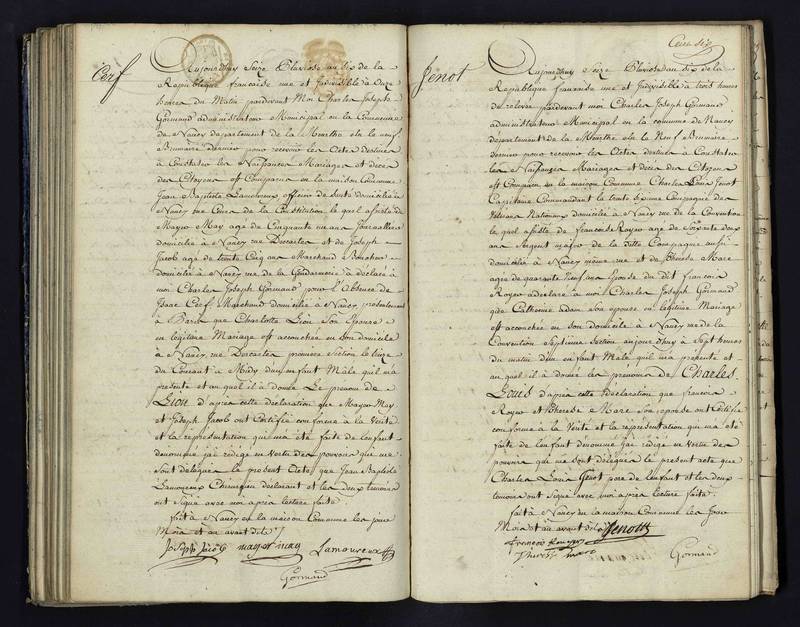 Cerf
Aujourdhuy Seize Pluviose an Six de la
République francaise une et Indivisible a Onze
heures du Matin pardevant Moi Charles Joseph
Gormand administrateur Municipal en la Commune
de Nancy département de la Meurthe elu le neuf
Brumaire dernier pour recevoir les Actes destinés
à Constater les Naissances Mariages et décès
des Citoyens est Comparu en la maison Commune
Jean Baptiste Lamoureux officier de Santé domicilié à
Nancy rue de la Constitution lequel assisté de
Mayor May agé de Cinquante un ans Journallier
domicilié à Nancy rue Descartes et de Joseph
Jacob age de trente Cinq ans Marchand Boucher
domicilié à Nancy rue de la Gendarmerie à déclaré à
moi Charles Joseph Gormand pour l'Absence de
Isaac Cerf Marchand domicilié à Nancy présentement
à Paris que Charlotte Lion Son Epouse
en légitime Mariage est accouchée en Son domicile
à Nancy rue Descartes premiere Section le
du Courant à Midy d'un enfant Mâle qu'il m'a
présenté et auquel il à donné Le prenom de
Lion d'après cette déclaration que Mayor May
et Joseph Jacob ont Certifié conforme à la Vérité
et la représentation qui m'a été faite de l'enfant
denommé j'ai rédigé en Vertu des pouvoirs qui me
sont délégués le présent Acte que Jean Baptiste
Lamoureux Chirurgien declarant et les deux temoins
ont Signé avec moi après lecture faite
fait à Nancy en la maison Commune les jour
Mois et an avant dits
Joseph Jacob mayor may Lamoureux
Gormand
Cent six
Jenot
Aujourdhuy Seize Pluviose an Six de la
République francaise une et Indivisible à trois heures
de relevée pardevant moi Charles Joseph Gormand
administrateur Municipal en la commune de Nancy
département de la Meurthe elu le Neuf Brumaire
dernier pour recevoir les Actes destinés à Constater
les Naissances Mariages et décès des Citoyens
est Comparu en la maison Commune Charles Louis Jenot
Capitaine Commandant la trente Compagnie des
Veterans Nationaux domicilié à Nancy rue de la Convention
lequel assisté de francois Royer agé de Soixante deux
ans Sergent major de la dite Compagnie aussi
domicilié à Nancy même rue et de Therese Mare
agée de quarante Neuf ans Epouse du dit francois
Royer a déclaré à moi Charles Joseph Gormand
que Catherine Adam son epouse en légitime Mariage
est accouchée en son domicile à Nancy rue de la
Convention Septieme Section aujourdhuy à Sept heures
du matin d'un enfant Male qu'il m'a présenté et
auquel il à donné les prenoms de Charles
Louis d'après cette déclaration que francois
Royer et Therese Mare Son épouse ont Certifié
conforme à la Vérité et la représentation qui m'a été
faite de l'enfant denommé j'ai rédigé en Vertu des
pouvoirs qui me sont délégués le présent acte que
Charles Louis Genot pere de l'enfant et les deux
temoins ont Signé avec moi après lecture faite
fait à Nancy en la maison Commune les Jour
Mois et an avant dits Jenot
francois Royer
Therese mare
Gormand